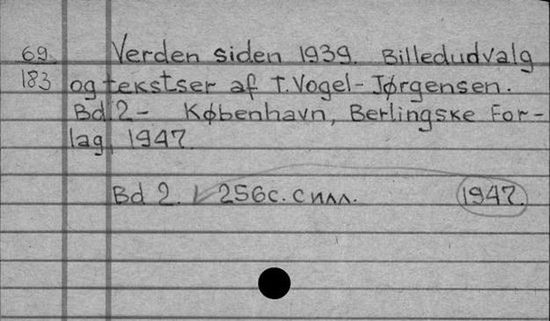 69. Verden siden 1939. Billedudvalg
183 og tekstser af T. Vogel-Jørgensen.
Bd 2- København, Berlingske For-
lag, 1947.
Bd 2. 256с. с илл. 1947.